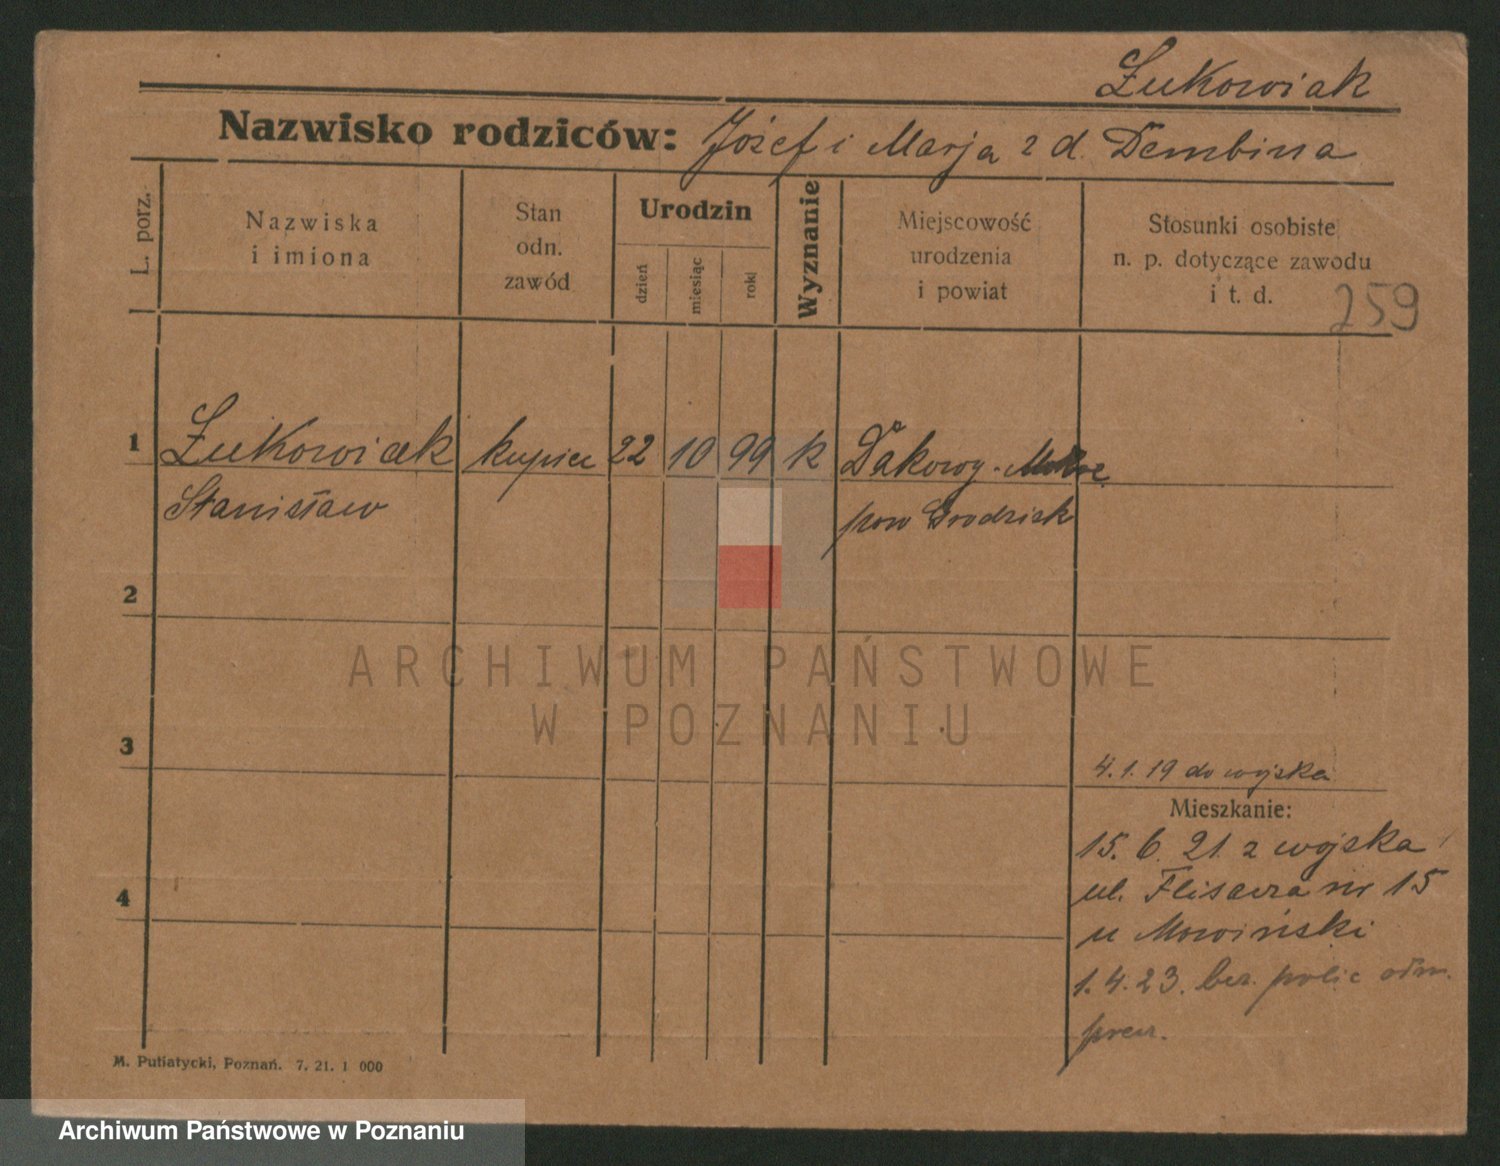 Żukowiak
Nazwisko rodziców: Józef i Marja z d. Dembina
L. porz.
Nazwiska
i imiona
Stan
odn.
zawód
Urodzin
dzień
miesiąc
rok
Wyznanie
Miejscowość
urodzenia
i powiat
Stosunki osobiste
n. p. dotyczące zawodu
i t. d.
259
1 Żukowiak kupiec 22 10 99 k Dakowy Mokre
Stanisław pow Grodzisk
2
ARCHIWUM PAŃSTWOWE
W POZNANIU
3
4.1.19 do wojska
Mieszkanie:
15. 6. 21. z wojska
4
ul. Flisacza nr 15
u Mowiński
1. 4. 23. bez. polic
M. Putiatycki, Poznań. 7. 21. 1 000
Archiwum Państwowe w Poznaniu